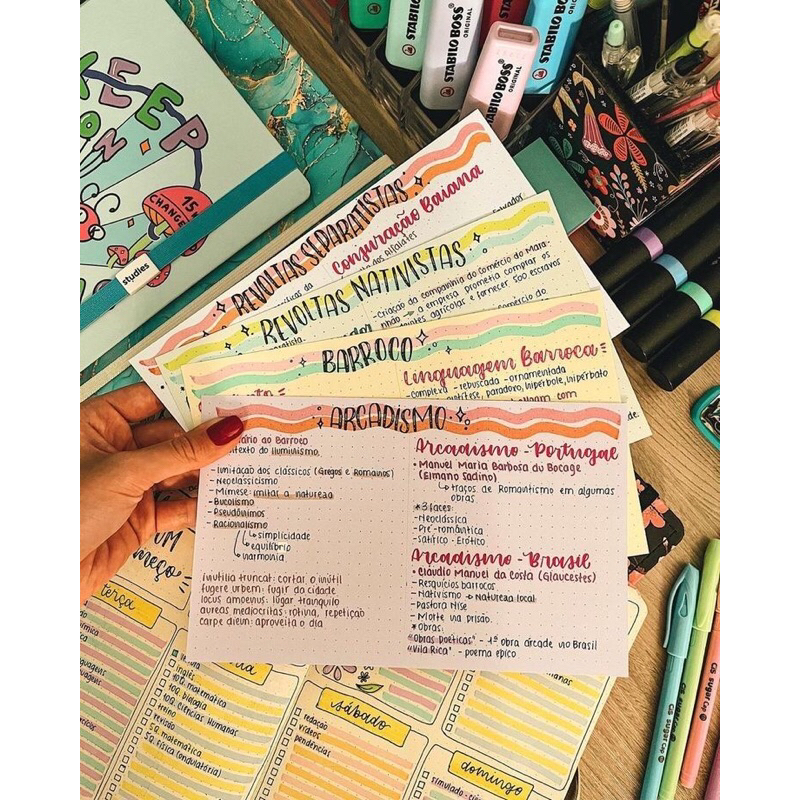 STABILO BOSS
ORIGINAL
STABILO BOSS
ORIGINAL
STABILO BOSS
ORIGINAL
STABILO BOSS
ORIGINAL
KEEP
ON
15%
CHANGE
studies
REVOLTAS SEPARATISTAS
Conjuração Baiana
Salvador
dos Alfaiates
REVOLTAS NATIVISTAS
-Criação da companhia do Comércio do Mara-
nhão → a empresa prometia comprar os
agrícolas e fornecer 500 escravos
comércio do
BARROCO
Linguagem Barroca
-complexa -rebuscada -ornamentada
antítese, paradoxo, hipérbole, hipérbato
com
ARCADISMO
ao Barroco
do Iluminismo
-Imitação dos clássicos (Gregos e Romanos)
-Neoclássicismo
-Mimese: imitar a natureza
-Bucolismo
-Pseudônimos
-Racionalismo
↳ simplicidade
↳ equilíbrio
↳ harmonia
inutilia truncat: cortar o inútil
fugere urbem: fugir da cidade
locus amoenus: lugar tranquilo
aureas mediocritas: rotina, repetição
carpe diem: aproveita o dia
Arcadismo - Portugal
• Manuel Maria Barbosa du Bocage
(Elmano Sadino)
↳ traços de Romantismo em algumas
obras
*3 faces:
-Neoclássica
-Pré-romântica
-Satírico - Erótico
Arcadismo - Brasil
• Cláudio Manuel da Costa (Glaucestes)
-Resquícios barrocos
-Nativismo → Natureza local
-Pastora Nise
-Morte na prisão
*Obras:
"Obras Poéticas" - 1ª obra árcade no Brasil
"Vila Rica" - poema épico
começo
terça
inglês
10Q matemática
10Q biologia
10Q ciências humanas
treino
revisão
5Q matemática
5Q física (ondulatória)
sábado
redação
vídeos
pendências
domingo
simulado
CIS sugar Cap
CIS sugar Cap